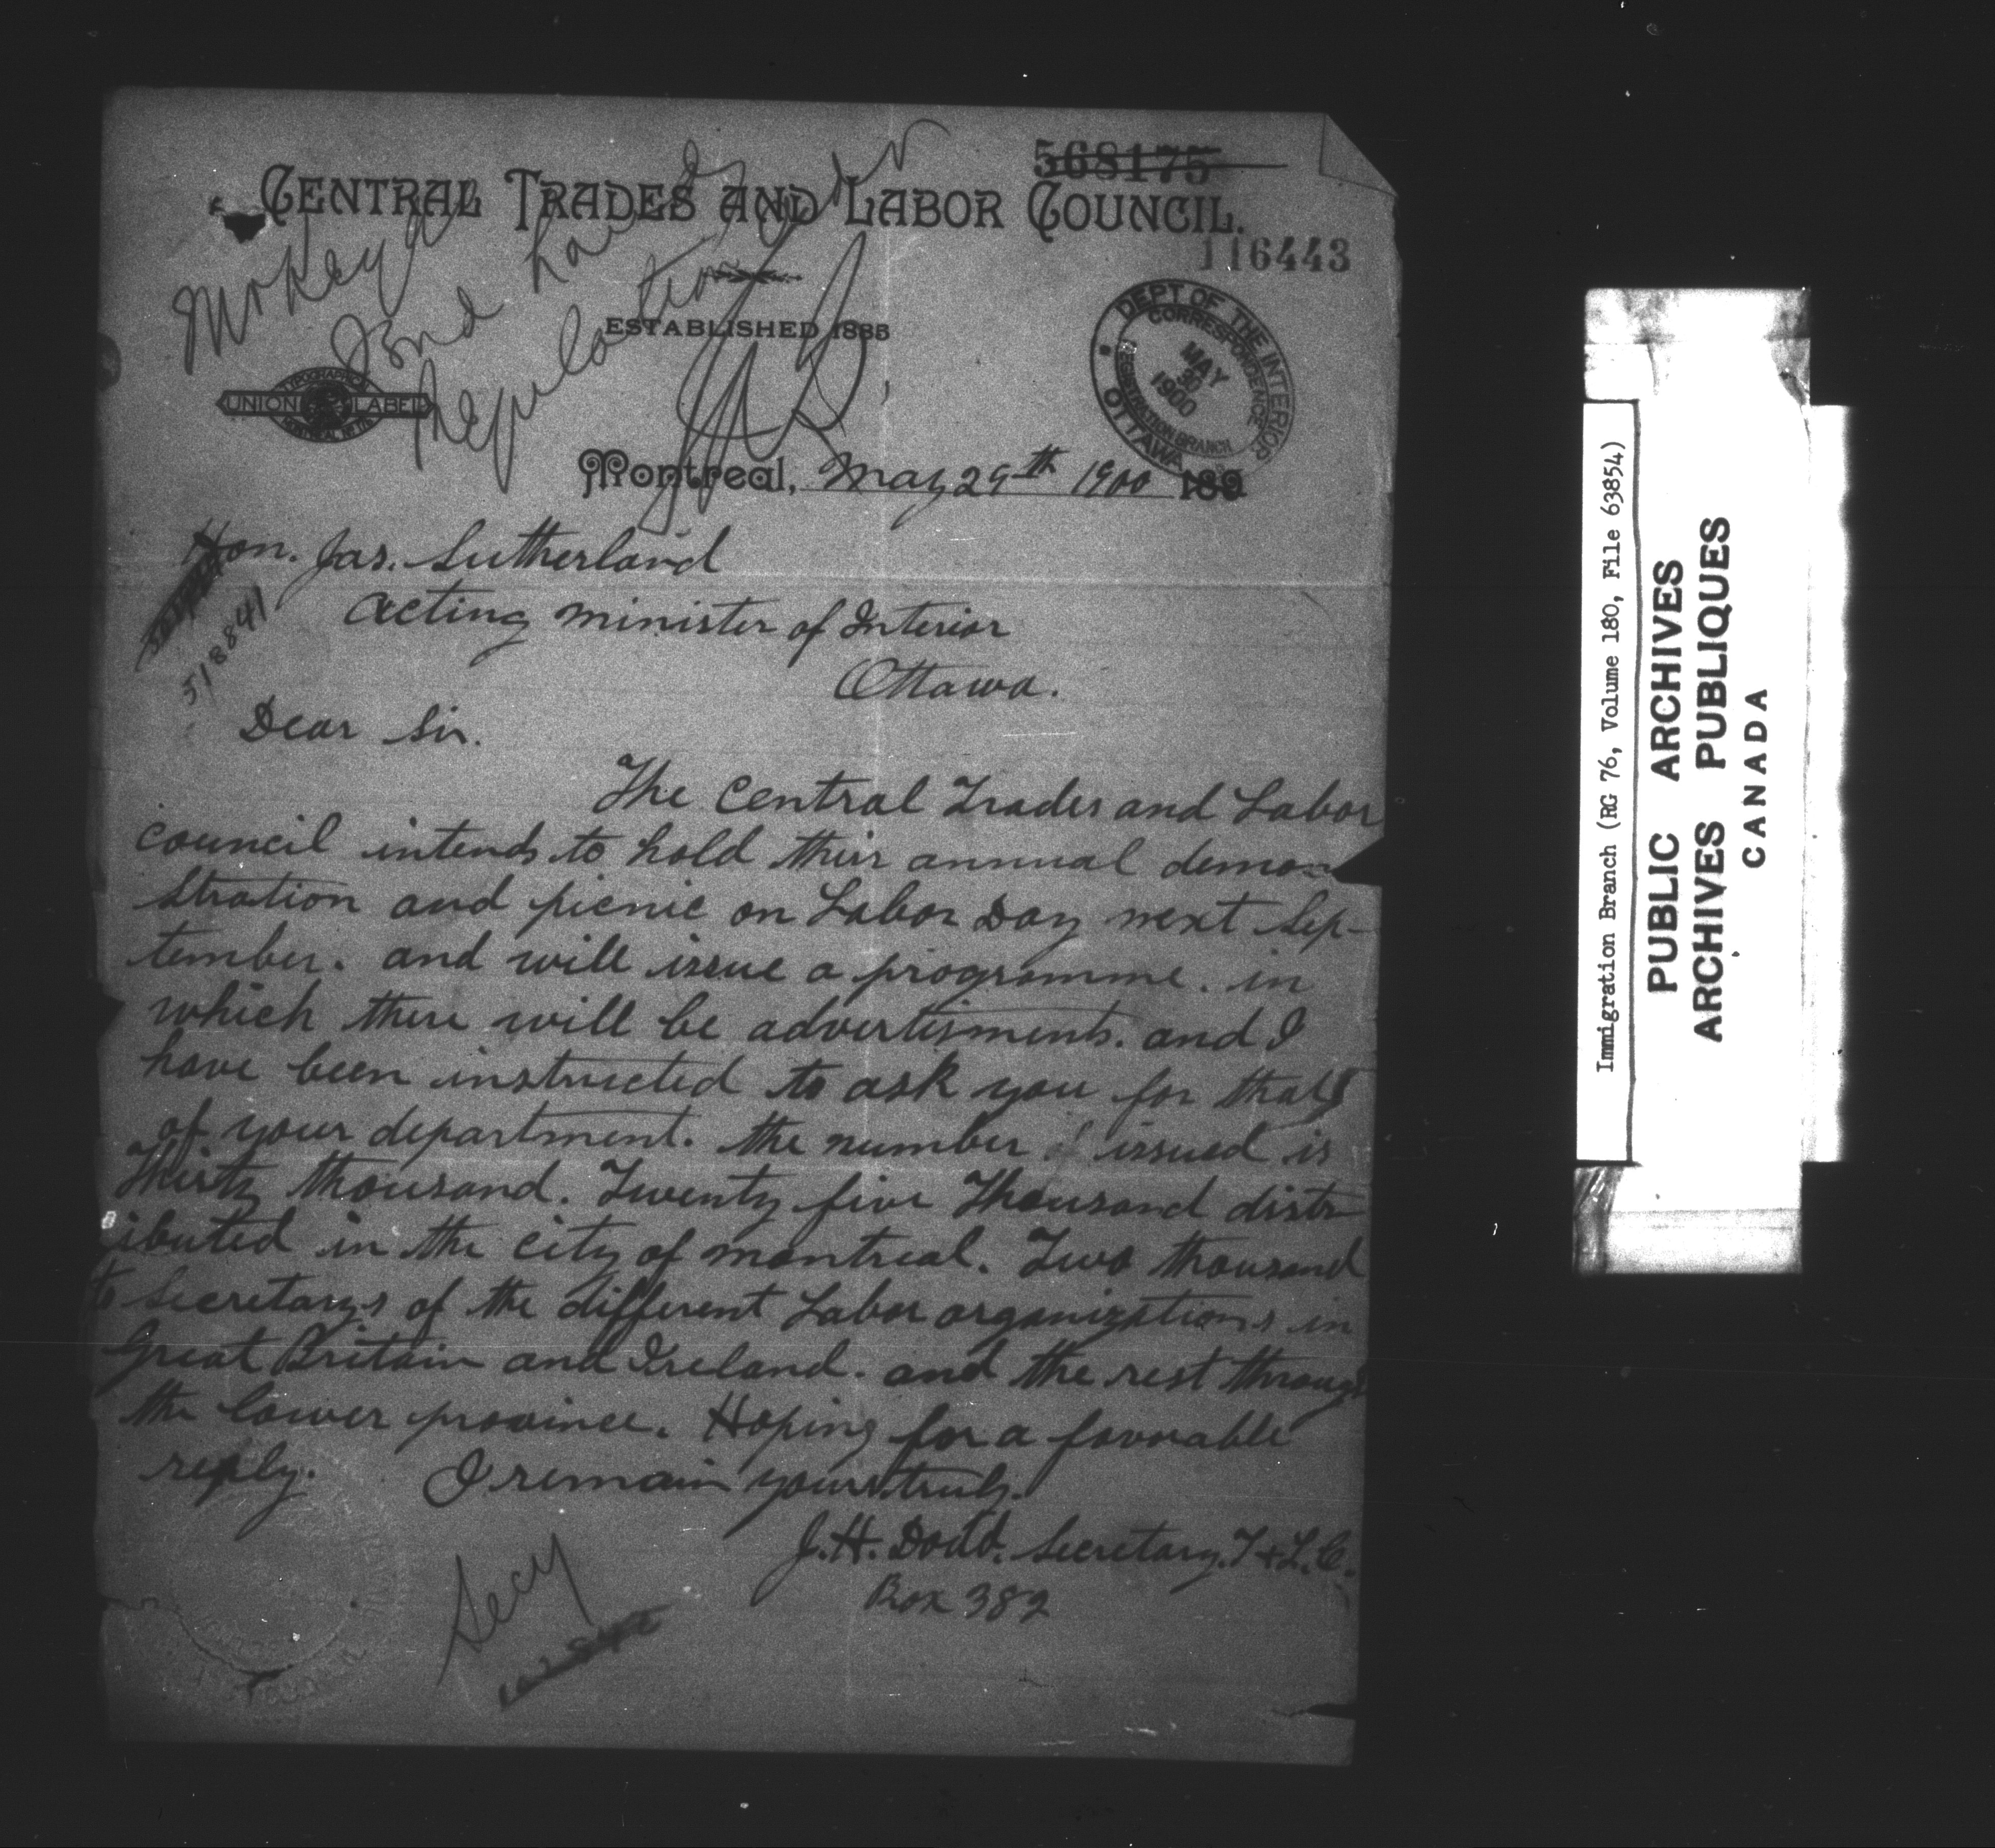 568175
CENTRAL TRADES AND LABOR COUNCIL.
116443
Mr Key
Send land
Regulations
ESTABLISHED 1885
TYPOGRAPHICAL
UNION LABEL
MONTREAL No 176
DEPT OF THE INTERIOR
CORRESPONDENCE
MAY
30
1900
REGISTRATION BRANCH
OTTAWA
Montreal, May 29th 1900 189
Hon. Jas. Sutherland
518841
Acting minister of Interior
Ottawa.
Dear Sir.
The Central Trades and Labor
council intends to hold their annual demon
stration and picnic on Labor Day next Sep-
tember. and will issue a programme. in
which there will be advertisments. and I
have been instructed to ask you for that
of your department. the number issued is
Thirty thousand. Twenty five Thousand distr
ibuted in the city of montreal. Two thousand
to Secretarys of the different Labor organizations in
Great Britain and Ireland. and the rest through
the lower province. Hoping for a favorable
reply. I remain yours truly.
J.H. Dodd. Secretary. T & L. C.
Box 382
Secy
Immigration Branch (RG 76, Volume 180, File 63854)
PUBLIC ARCHIVES
ARCHIVES PUBLIQUES
CANADA